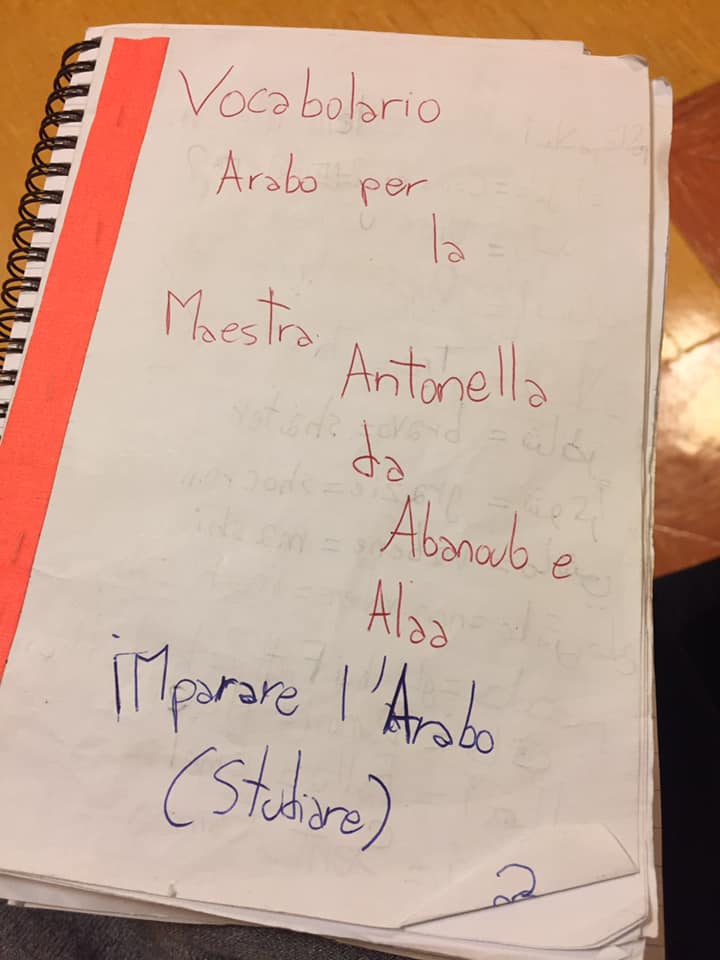 Vocabolario
Arabo per
la
Maestra
Antonella
da
Abanoub e
Alaa
iMparare l'Arabo
(Studiare)